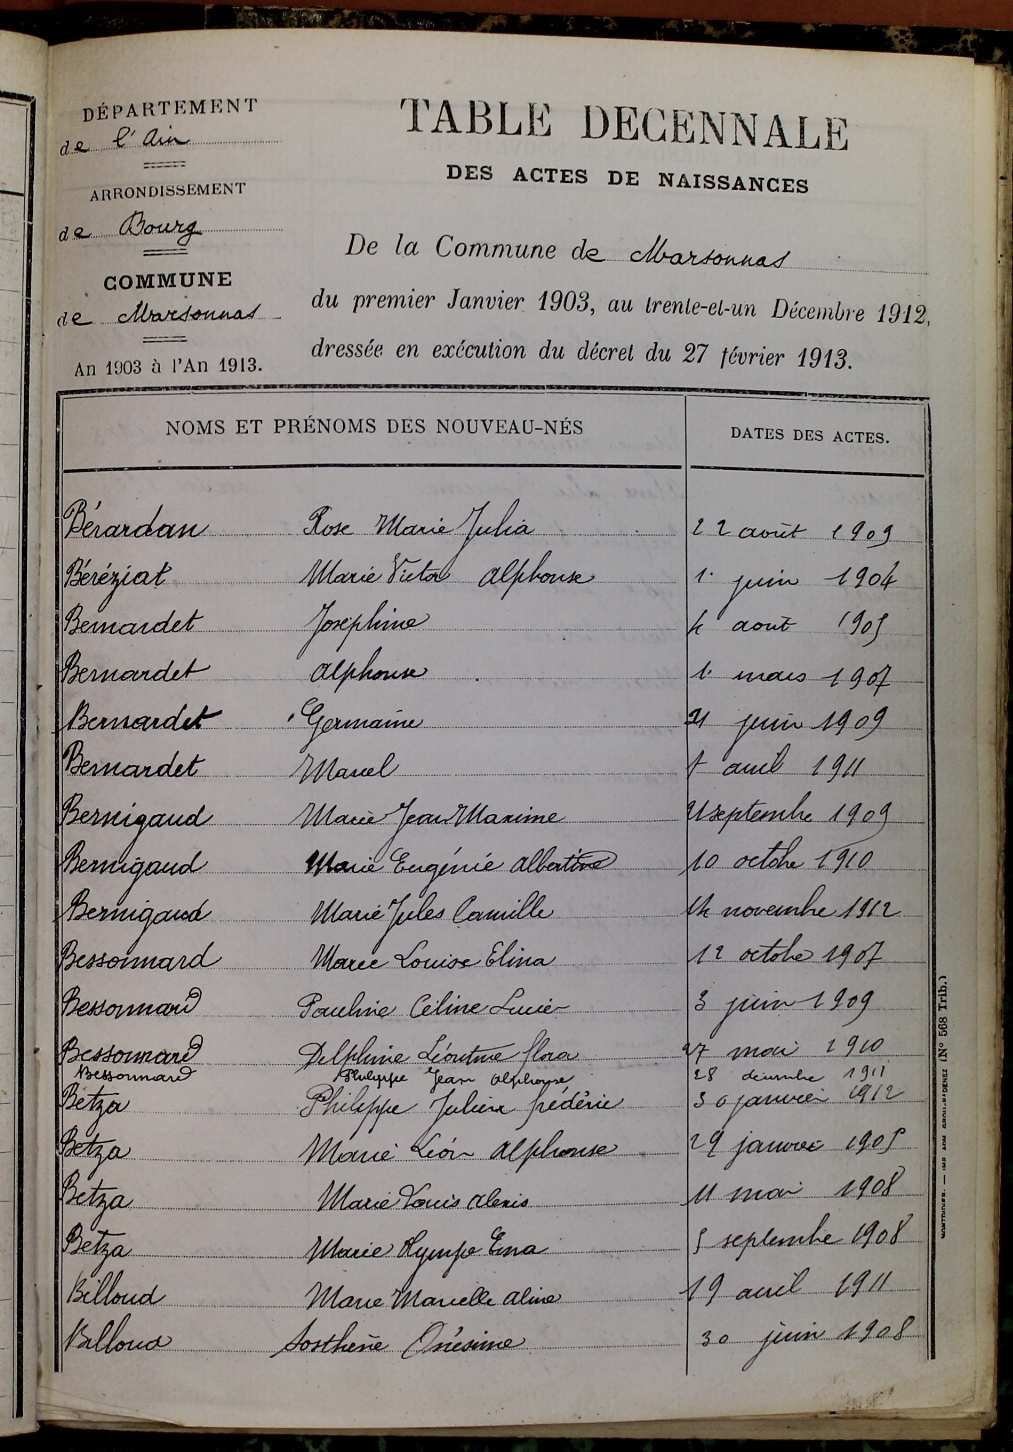 DÉPARTEMENT
de l'Ain
ARRONDISSEMENT
de Bourg
COMMUNE
de Marsonnas
An 1903 à l'An 1913.
TABLE DECENNALE
DES ACTES DE NAISSANCES
De la Commune de Marsonnas
du premier Janvier 1903, au trente-et-un Décembre 1912,
dressée en exécution du décret du 27 février 1913.
NOMS ET PRÉNOMS DES NOUVEAU-NÉS DATES DES ACTES.
Bérardan Rose Marie Julia 22 août 1909
Béréziat Marie Victor Alphonse 1. juin 1904
Bernardet Joséphine 4 août 1905
Bernardet Alphonse 1. mars 1907
Bernardet Germaine 21 juin 1909
Bernardet Marcel avril 1911
Bernigaud Marie Jean Maxime 21 septembre 1909
Bernigaud Marie Eugénie Albertine 10 octobre 1910
Bernigaud Marie Jules Camille 14 novembre 1912
Bessonnard Marie Louise Elina 12 octobre 1907
Bessonnard Pauline Céline Lucie 3 juin 1909
Bessonnard Delphine Léontine flora 27 mai 1910
Bessonnard Philippe Jean Alphonse 28 décembre 1911
Betza Philippe Julien frédéric 30 janvier 1912
Betza Marie Léon Alphonse 29 janvier 1905
Betza Marie Louis Alexis 11 mai 1908
Betza Marie Olympe Ema 5 septembre 1908
Billoud Marie Marcelle Aline 19 avril 1911
Billoud Sosthène Onésime 30 juin 1908
(N° 568 Trib.)